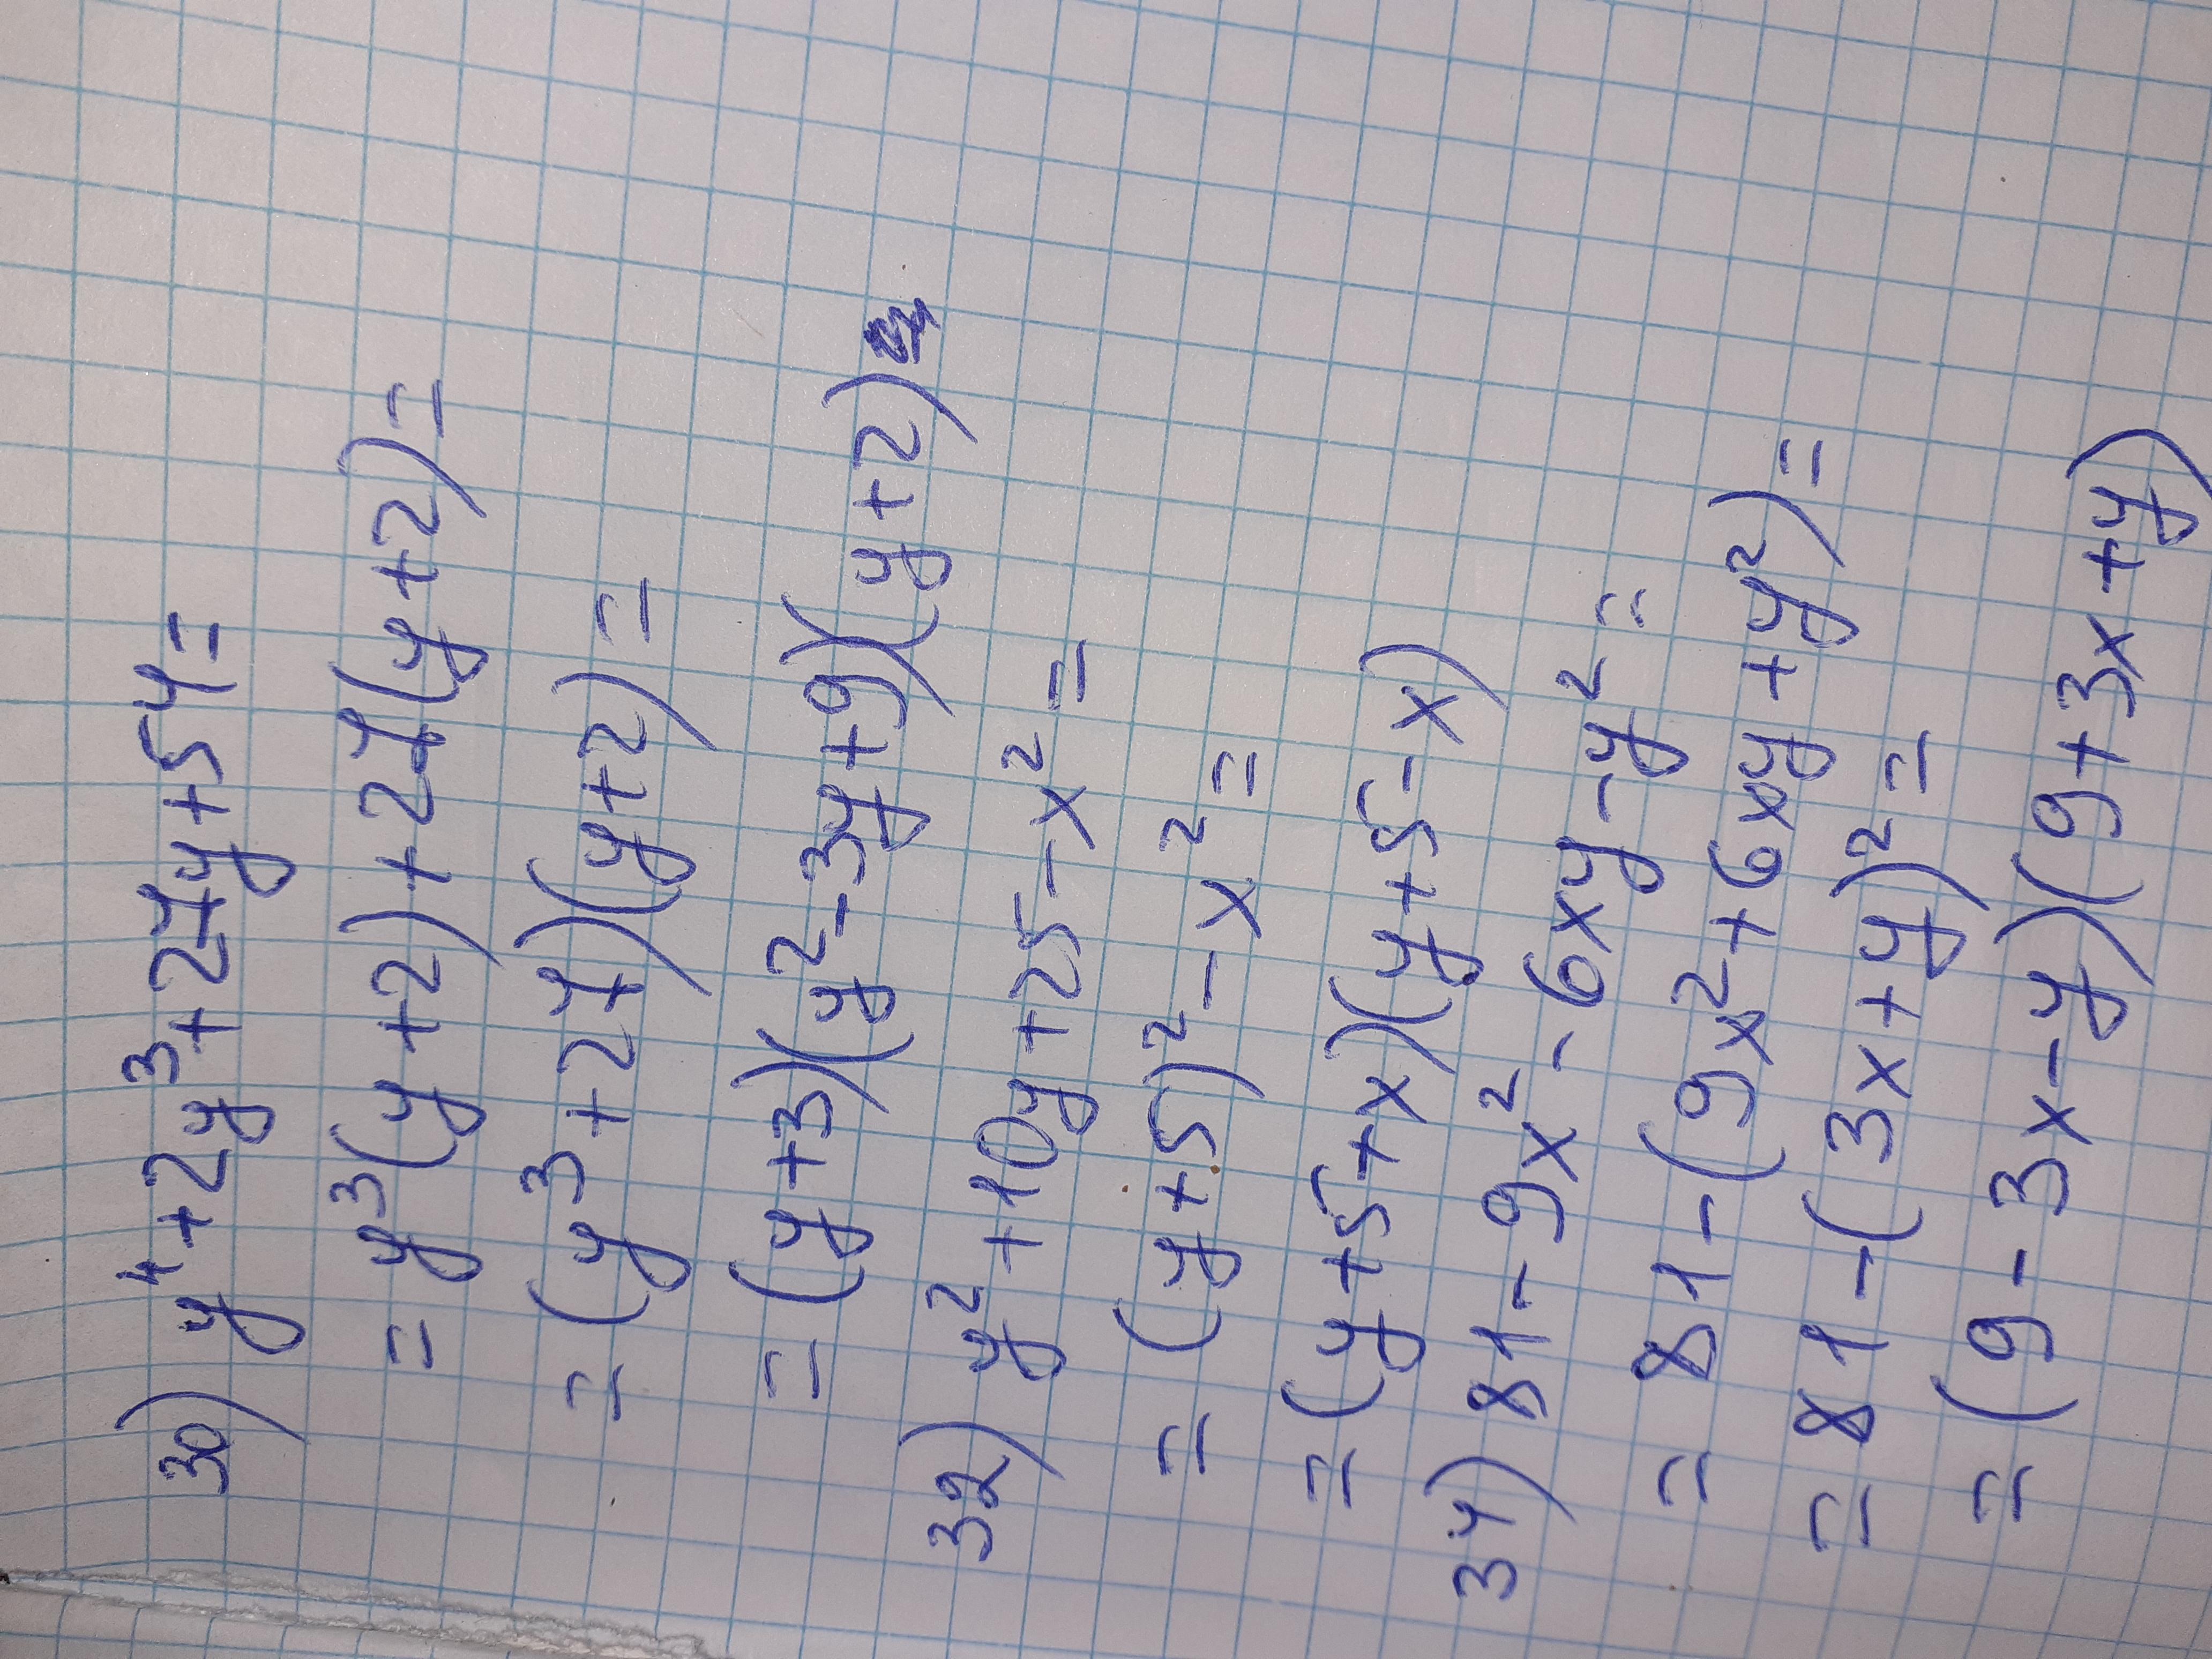 30) y⁴+2y³+27y+54=
= y³(y+2)+27(y+2)=
= (y³+27)(y+2)=
= (y+3)(y²-3y+9)(y+2)
32) y²+10y+25-x²=
= (y+5)²-x²=
= (y+5+x)(y+5-x)
34) 81-9x²-6xy-y²=
= 81-(9x²+6xy+y²)=
= 81-(3x+y)²=
= (9-3x-y)(9+3x+y)